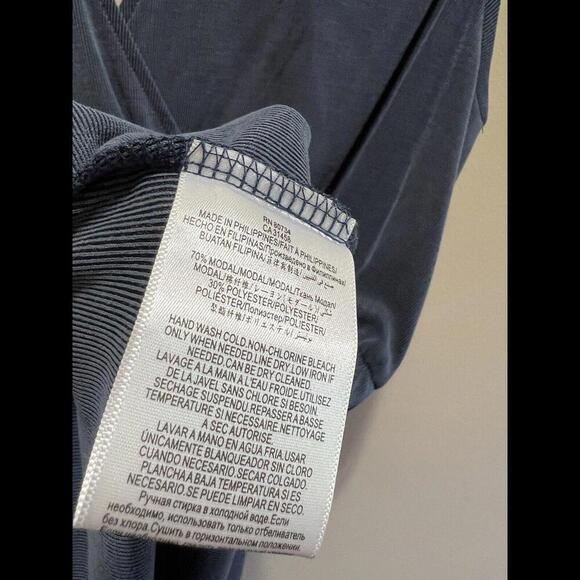 RN 80734
CA 31456
MADE IN PHILIPPINES/FAIT À PHILIPPINES/
HECHO EN FILIPINAS/Произведено в Филиппинах/
BUATAN FILIPINA/菲律宾制造/صنع في الفلبين
70% MODAL/MODAL/MODAL/Ткань Модал/
MODAL/莫代尔纤维/レーヨン(モダール)/
30% POLYESTER/POLYESTER/
POLIÉSTER/Полиэстер/POLIESTER/
聚酯纤维/ポリエステル/بوليستر
HAND WASH COLD. NON-CHLORINE BLEACH
ONLY WHEN NEEDED. LINE DRY. LOW IRON IF
NEEDED. CAN BE DRY CLEANED.
LAVAGE A LA MAIN A L'EAU FROIDE. UTILISEZ
DE LA JAVEL SANS CHLORE SI BESOIN.
SECHAGE SUSPENDU. REPASSER A BASSE
TEMPERATURE SI NECESSAIRE. NETTOYAGE
A SEC AUTORISE.
LAVAR A MANO EN AGUA FRIA. USAR
ÚNICAMENTE BLANQUEADOR SIN CLORO
CUANDO NECESARIO. SECAR COLGADO.
PLANCHA A BAJA TEMPERATURA SI ES
NECESARIO. SE PUEDE LIMPIAR EN SECO.
Ручная стирка в холодной воде. Если
необходимо, использовать только отбеливатель
без хлора. Сушить в горизонтальном положении.